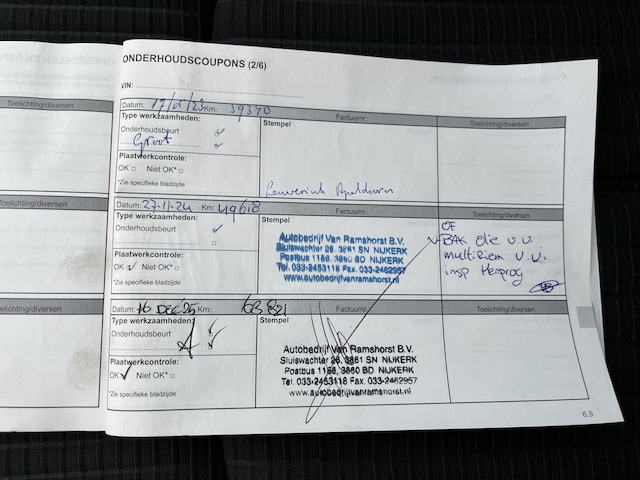 ONDERHOUDSCOUPONS (2/6)
VIN:
Toelichting/diversen
Datum: 17/ /23 Km: 39370
Factuurnr.:
Toelichting/diversen
Type werkzaamheden:
Stempel
Onderhoudsbeurt
Groot
Plaatwerkcontrole:
OK □ Niet OK* □
*Zie specifieke bladzijde
Apeldoorn
Toelichting/diversen
Datum: 27-11-24 Km: 49618
Factuurnr.:
Toelichting/diversen
Type werkzaamheden:
Stempel
Onderhoudsbeurt
Plaatwerkcontrole:
OK Niet OK* □
*Zie specifieke bladzijde
Autobedrijf Van Ramshorst B.V.
Sluiswachter 26, 3861 SN NIJKERK
Postbus 1156, 3860 BD NIJKERK
Tel. 033-2453118 Fax. 033-2462957
www.autobedrijfvanramshorst.nl
OF
BAK olie v.v.
multiriem v.v.
insp Herprog
Toelichting/diversen
Datum: 16 DEC 25 Km: 63 821
Factuurnr.:
Toelichting/diversen
Type werkzaamheden:
Stempel
Onderhoudsbeurt
A
Plaatwerkcontrole:
OK Niet OK* □
*Zie specifieke bladzijde
Autobedrijf Van Ramshorst B.V.
Sluiswachter 26, 3861 SN NIJKERK
Postbus 1156, 3860 BD NIJKERK
Tel. 033-2453118 Fax. 033-2462957
www.autobedrijfvanramshorst.nl
6.9